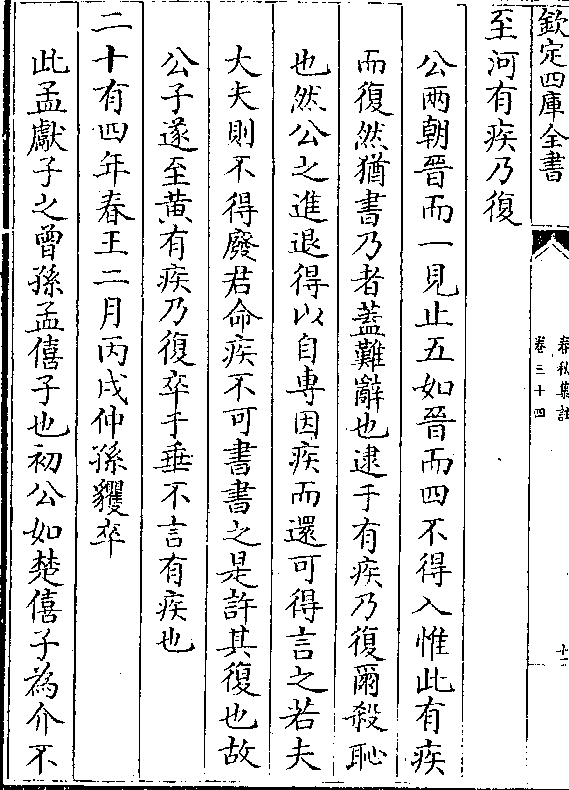 欽定四庫全書
春秋集註
卷三十四
至河有疾乃復
公兩朝晉而一見止五如晉而四不得入惟此有疾
而復然猶書乃者蓋難辭也逮于有疾乃復爾殺恥
也然公之進退得以自專因疾而還可得言之若夫
大夫則不得廢君命疾不可書書之是許其復也故
公子遂至黃有疾乃復卒于垂不言有疾也
二十有四年春王二月丙戌仲孫貜卒
此孟獻子之曾孫孟僖子也初公如楚僖子為介不